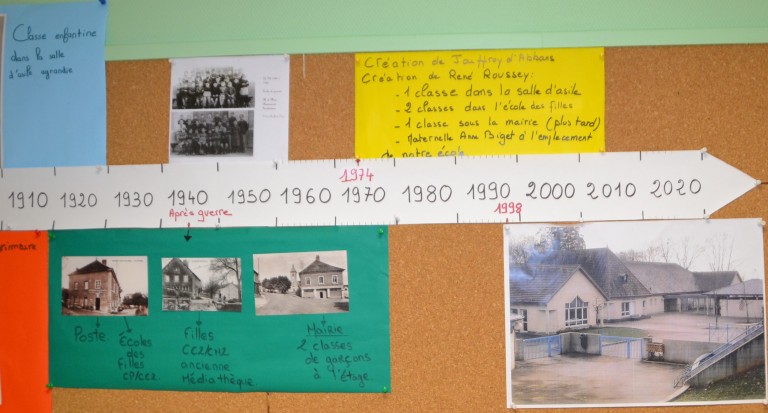 Classe enfantine
dans la salle
d'asile agrandie
Création de Jouffroy d'Abbans
Création de René Roussey:
- 1 classe dans la salle d'asile
- 2 classes dans l'école des filles
- 1 classe sous la mairie (plus tard)
- Maternelle Anne Biget à l'emplacement
de notre école
1974
1910 1920 1930 1940 1950 1960 1970 1980 1990 2000 2010 2020
Après guerre
1998
Poste
Écoles
des
filles
CP/CE2
Filles
CE2/CM2
ancienne
Médiathèque
Mairie
2 classes
de garçons
à l'étage